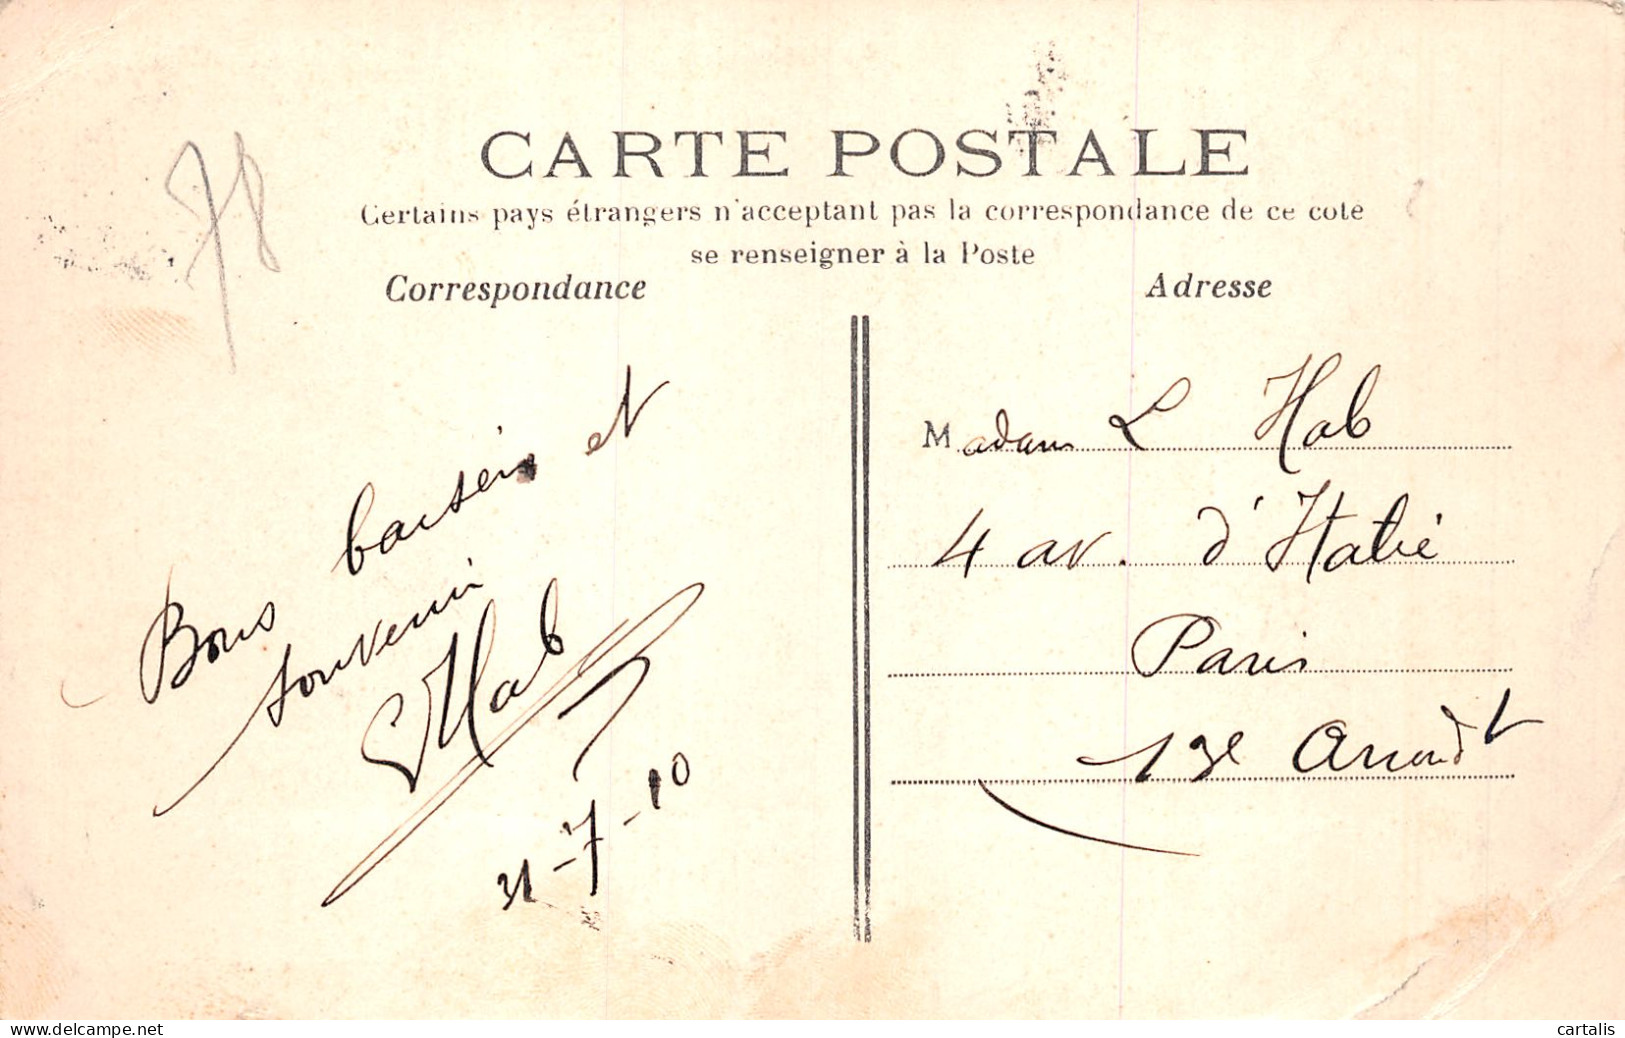 78
CARTE POSTALE
Certains pays étrangers n'acceptant pas la correspondance de ce côté
se renseigner à la Poste
Correspondance
Adresse
Bons baisers et
souvenir
Hab
31-7-10
Madam L Hab
4 av. d'Italie
Paris
13e Arrondt
delcampe.net
cartalis